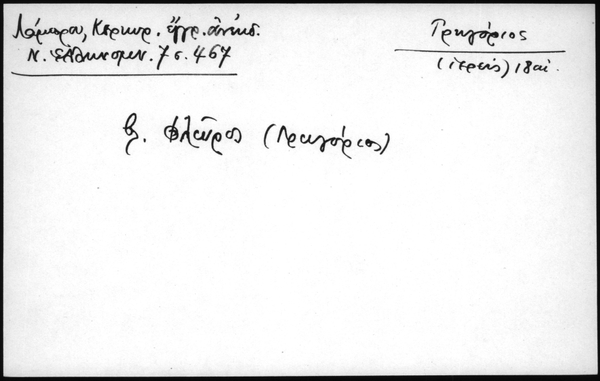 Λάμπρου, Κερκυρ. ἔγγρ. ἀνέκδ.
Ν. Ἑλληνομν. 7 σ. 467
Γρηγόριος
(ἱερεύς) 18 αἰ.
βλ. Φλῶρος (Γρηγόριος)